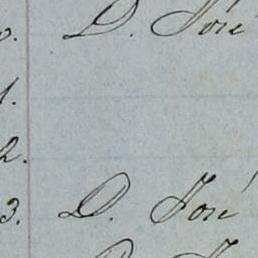 0. D. José
1.
2.
3. D. José